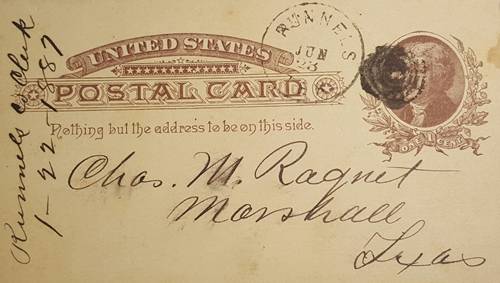 UNITED STATES
POSTAL CARD
Nothing but the address to be on this side.
RUNNELS
JUN
23
ONE CENT
Chas. M. Raguet
Marshall
Texas
Runnels Co Clerk
1-22-1887